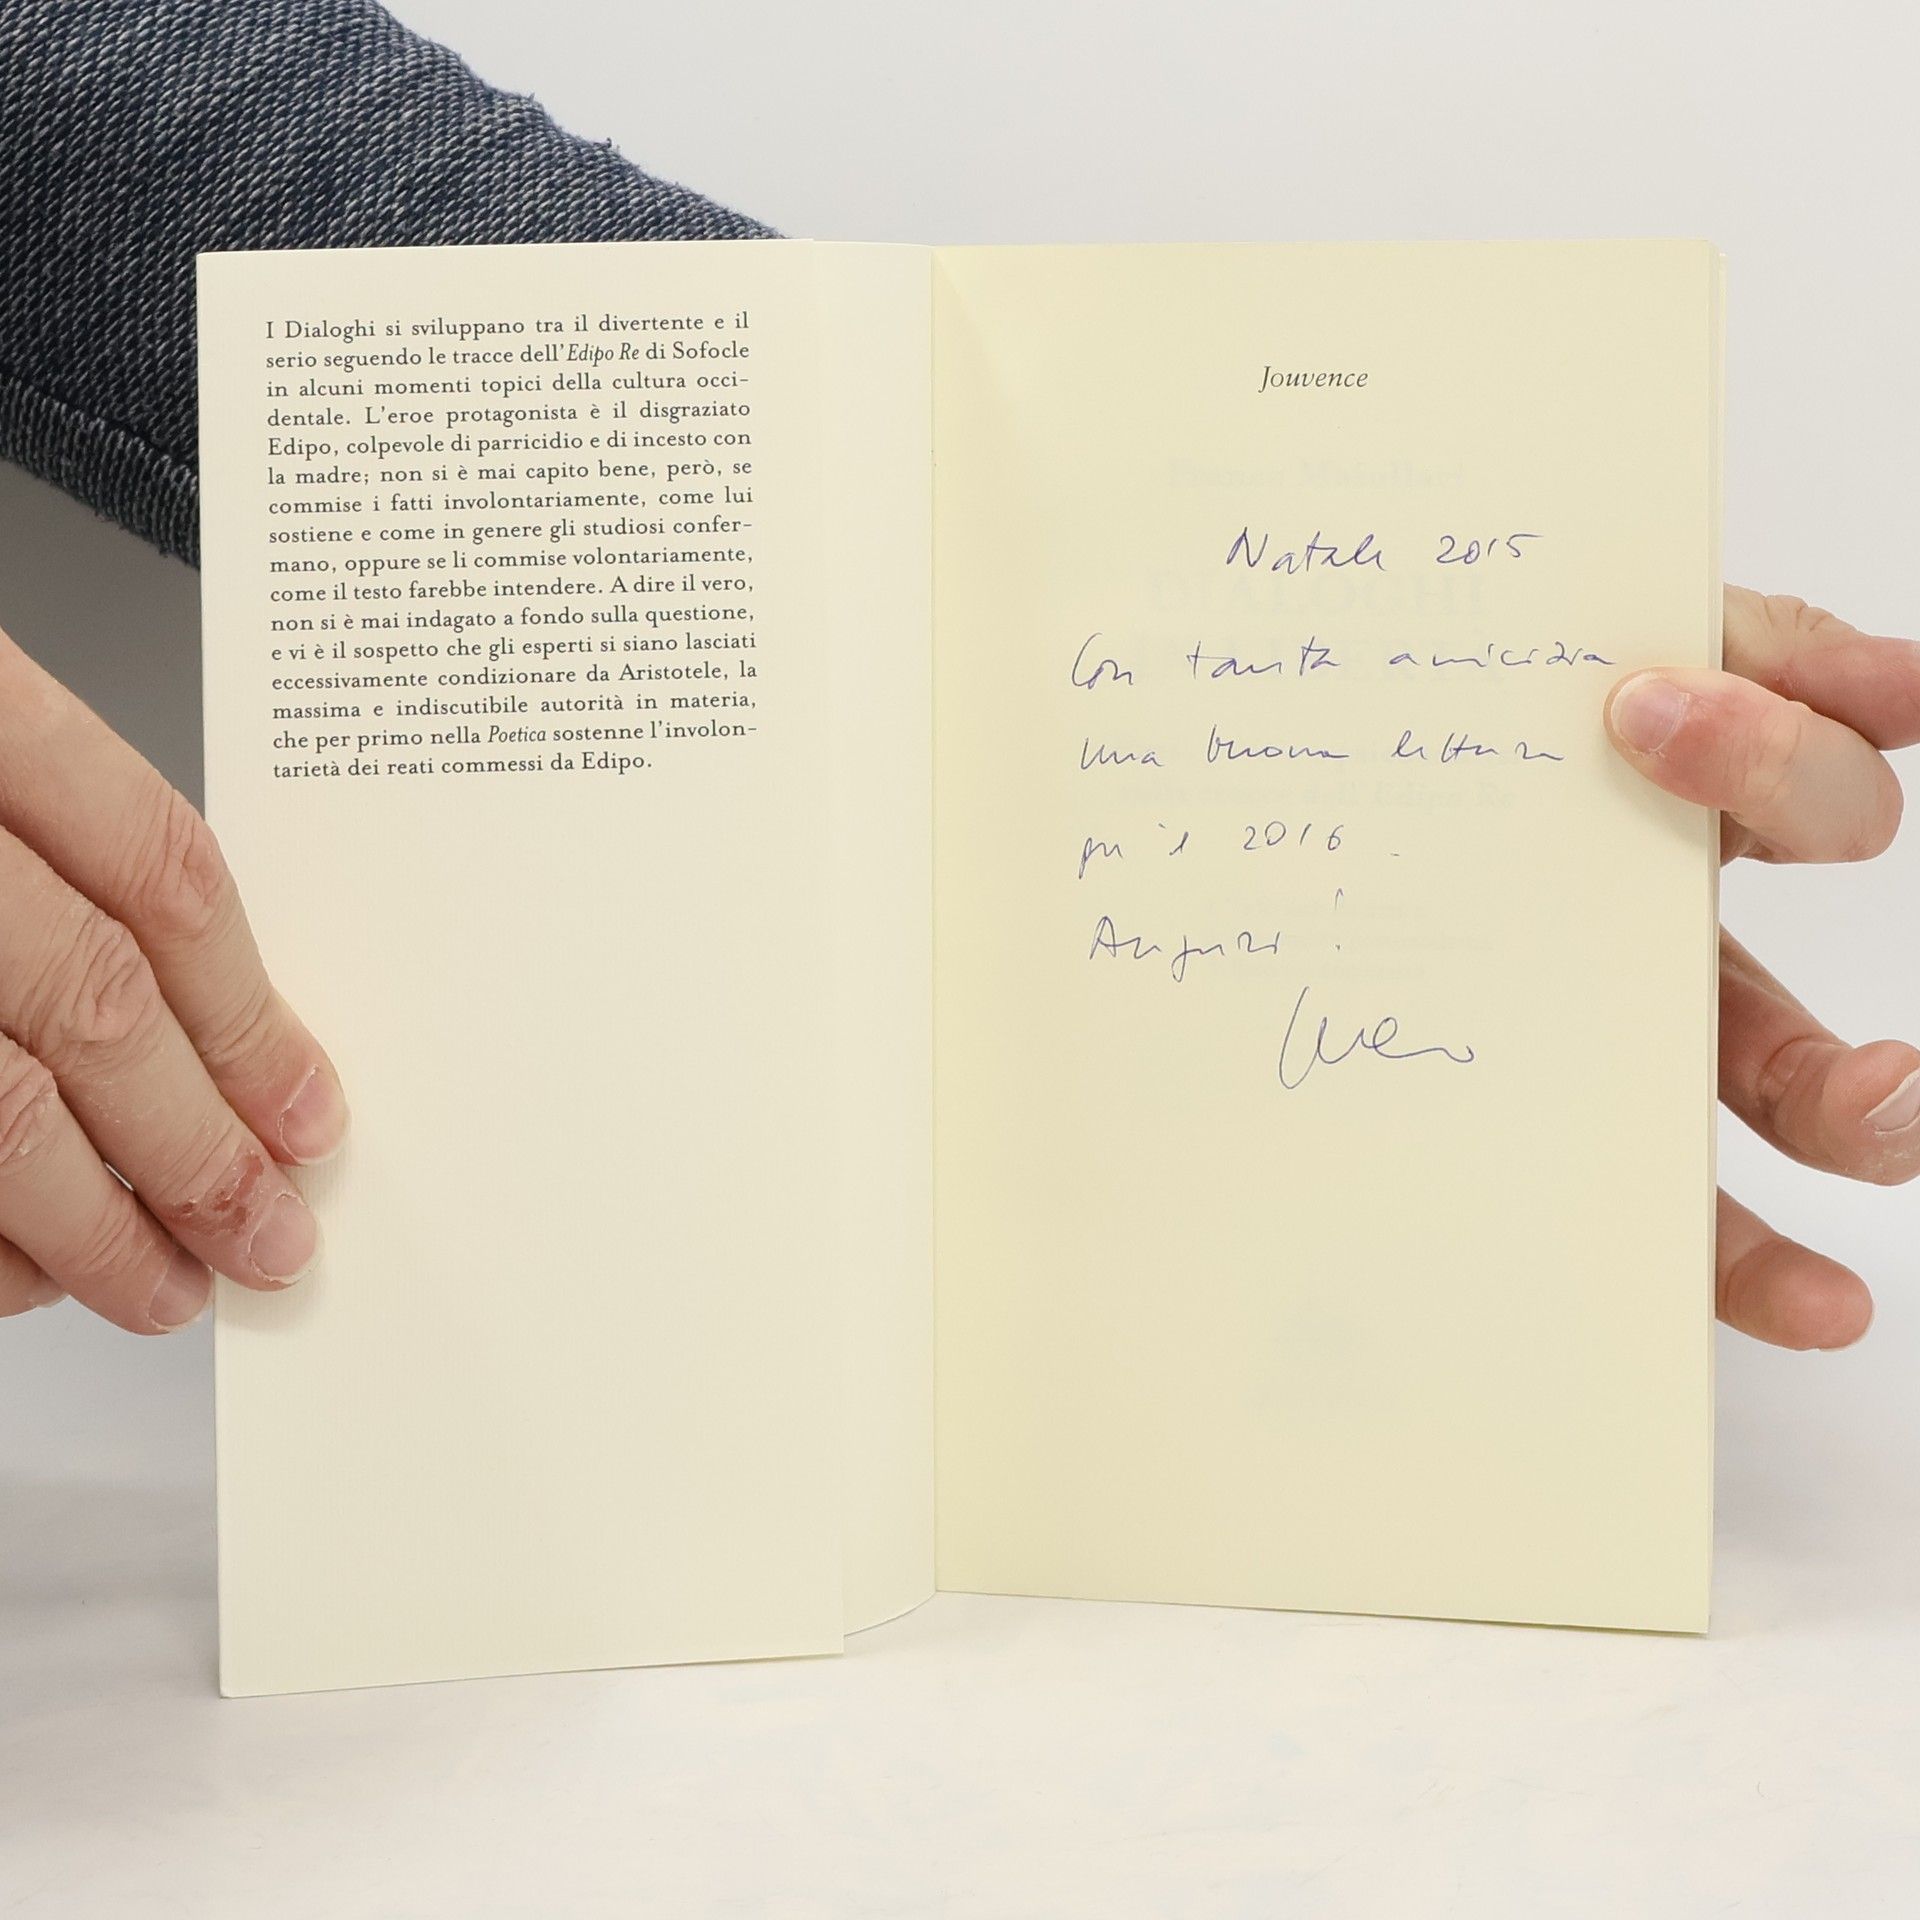 I Dialoghi si sviluppano tra il divertente e il
serio seguendo le tracce dell'Edipo Re di Sofocle
in alcuni momenti topici della cultura occi-
dentale. L'eroe protagonista è il disgraziato
Edipo, colpevole di parricidio e di incesto con
la madre; non si è mai capito bene, però, se
commise i fatti involontariamente, come lui
sostiene e come in genere gli studiosi confer-
mano, oppure se li commise volontariamente,
come il testo farebbe intendere. A dire il vero,
non si è mai indagato a fondo sulla questione,
e vi è il sospetto che gli esperti si siano lasciati
eccessivamente condizionare da Aristotele, la
massima e indiscutibile autorità in materia,
che per primo nella Poetica sostenne l'involon-
tarietà dei reati commessi da Edipo.
Jouvence
Natale 2015
Con tanta amicizia
una buona lettura
per il 2016.
Auguri!